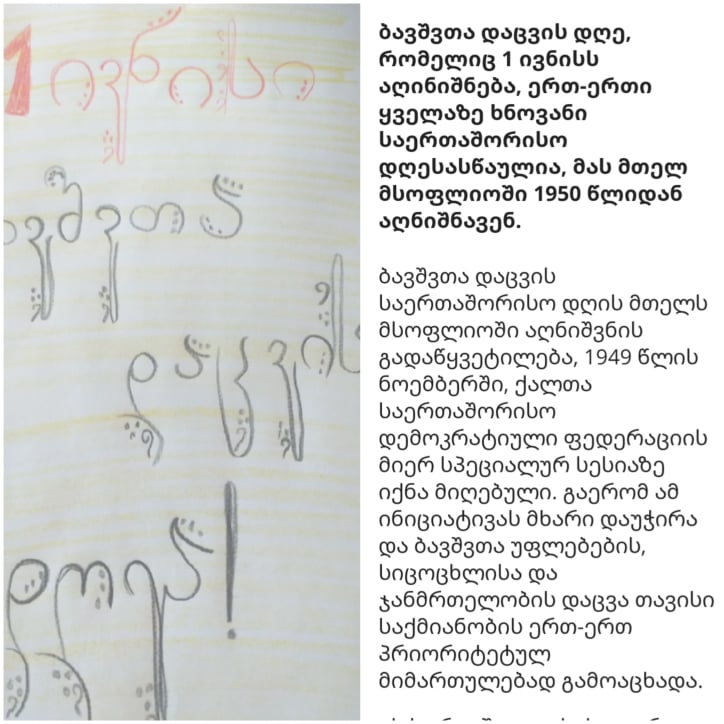 1 ივნისი
ავშვთა
დაცვის
დღეა!
ბავშვთა დაცვის დღე,
რომელიც 1 ივნისს
აღინიშნება, ერთ-ერთი
ყველაზე ხნოვანი
საერთაშორისო
დღესასწაულია, მას მთელ
მსოფლიოში 1950 წლიდან
აღნიშნავენ.
ბავშვთა დაცვის
საერთაშორისო დღის მთელს
მსოფლიოში აღნიშვნის
გადაწყვეტილება, 1949 წლის
ნოემბერში, ქალთა
საერთაშორისო
დემოკრატიული ფედერაციის
მიერ სპეციალურ სესიაზე
იქნა მიღებული. გაერომ ამ
ინიციატივას მხარი დაუჭირა
და ბავშვთა უფლებების,
სიცოცხლისა და
ჯანმრთელობის დაცვა თავისი
საქმიანობის ერთ-ერთ
პრიორიტეტულ
მიმართულებად გამოაცხადა.